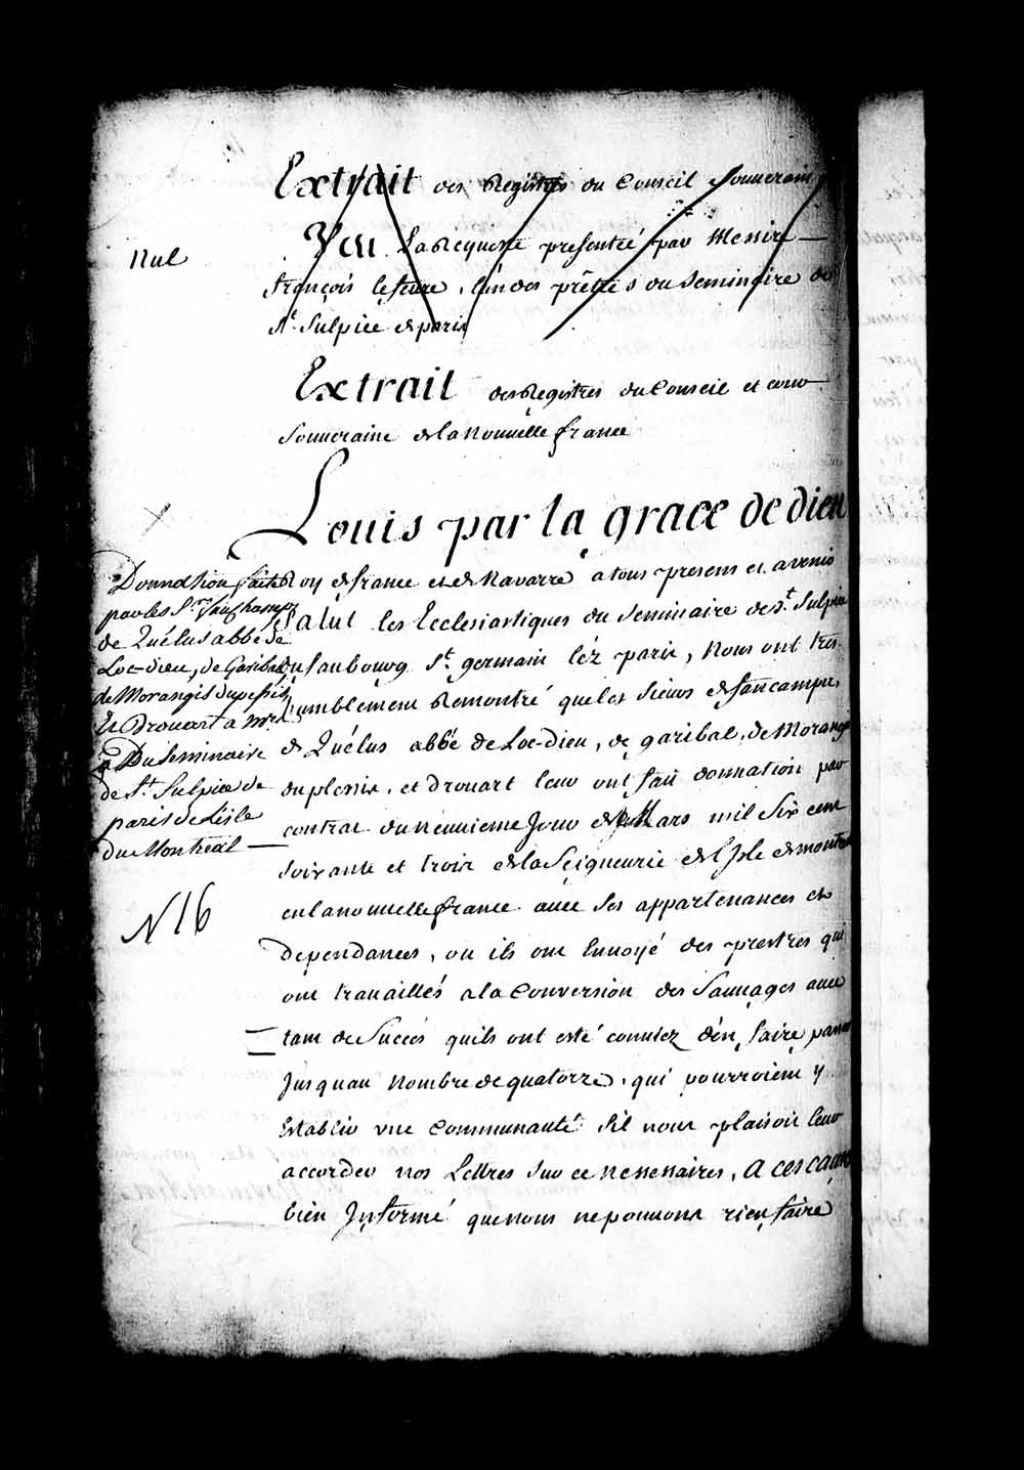 Extrait des Registres du Conseil Souuerain
Nul
Veu La Requeste presentée par Messire
françois lefeure, l'un des prêtres du Seminaire de
St. Sulpice de paris
Extrait des Registres du Conseil et cour
Souueraine de la Nouuelle france
Louis par la grace de dieu
Roy de france et de Nauarre a tous presens et auenir
Salut les Ecclesiastiques du Seminaire de St. Sulpice
du faubourg St. germain léz paris, Nous ont tres
humblement Remontré que les Sieurs de fancampe,
de Quélus abbé de Loc-dieu, de garibal, de Morangi
duplessis, et drouart leur ont fait donnation par
contrat du neuuieme Jour de Mars mil Six cent
soixante et trois de la Seigneurie de l'Isle de montreal
en la nouuelle france auec ses appartenances et
dependances, ou ils ont Enuoyé des prestres qui
ont trauaillés a la Conuersion des Sauuages auec
tant de Succés quils ont esté conuiez d'en faire passer
Jusquau Nombre de quatorze, qui pourroient y
Establir vne Communauté Sil nous plaisoit leur
accorder nos Lettres sur ce nessessaires, A ces causes
bien Informé que nous ne pouuons rien faire
Donnation faite
par les Srs. fanchamp
de Quélus abbé de
Loc-dieu, de Garibal,
de Morangis Duplessis
Et Drouart a Mrs.
Du Seminaire
de St. Sulpice de
paris de L'isle
du Montreal
N 16